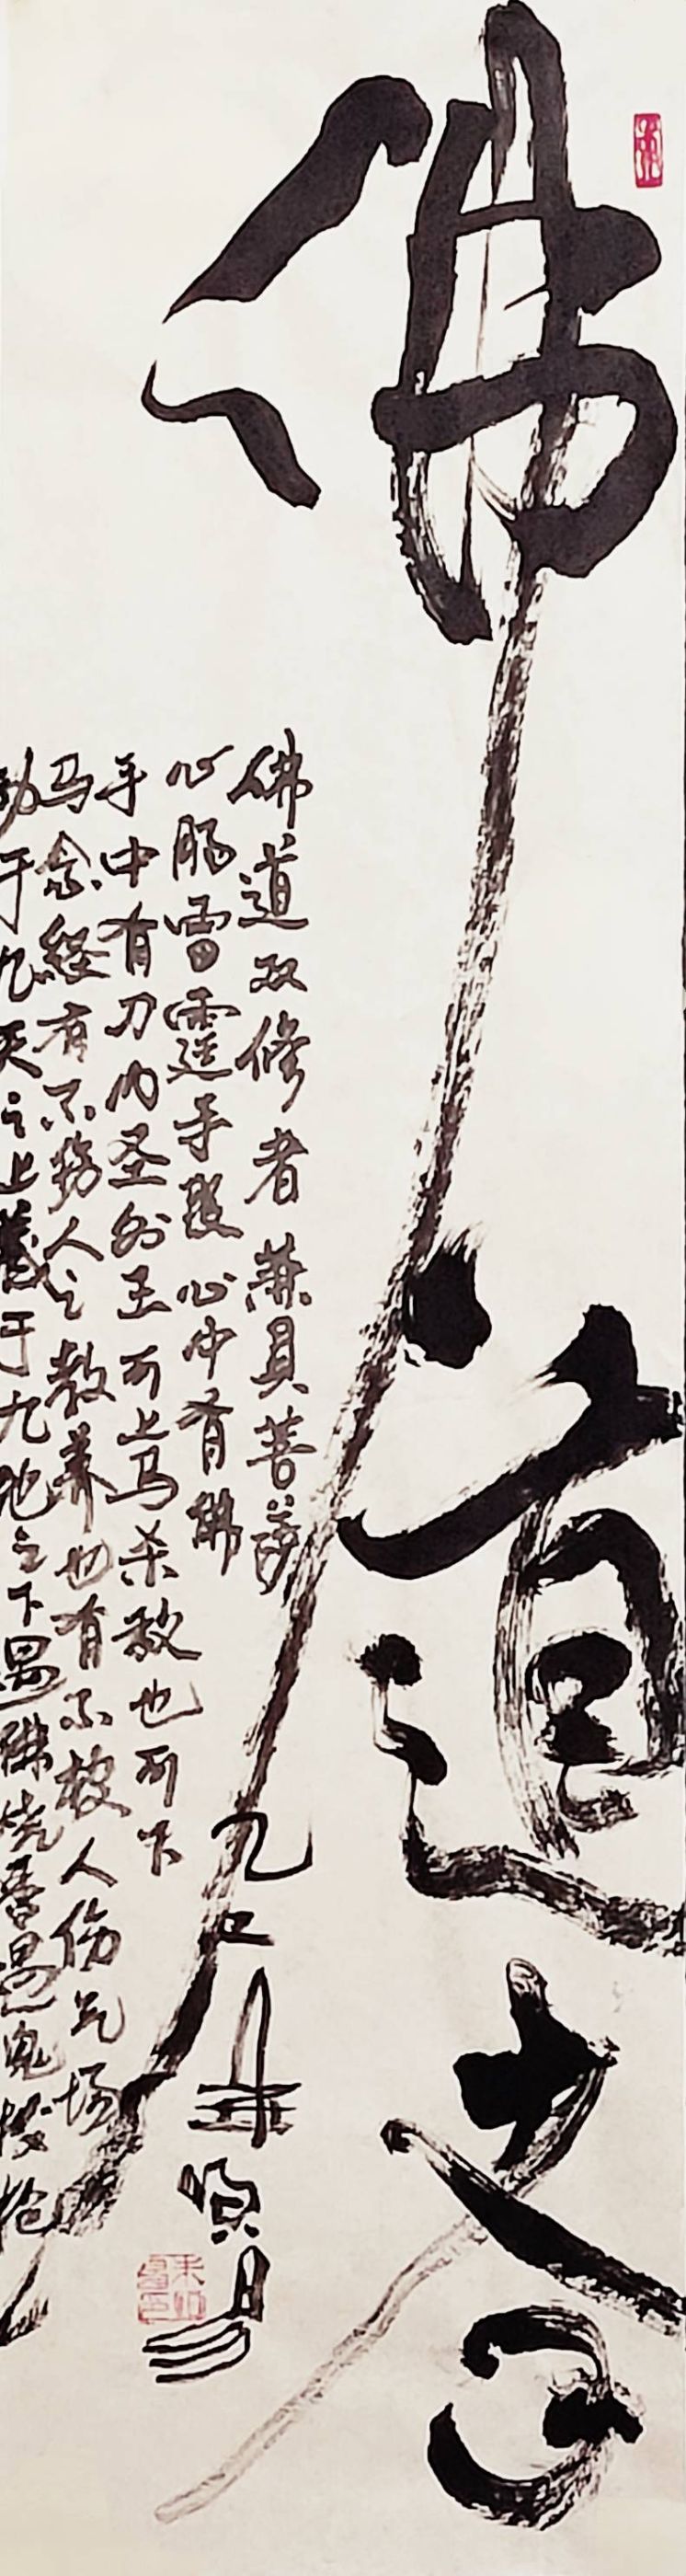 佛道
佛道双修者兼具菩萨
心肠雷霆手段心中有佛
手中有刀内圣外王可上马杀敌也可下
马念经有不伤人之教养也有不被人伤气场
动于九天之上藏于九地之下遇佛烧香遇鬼拔枪
乙巳年